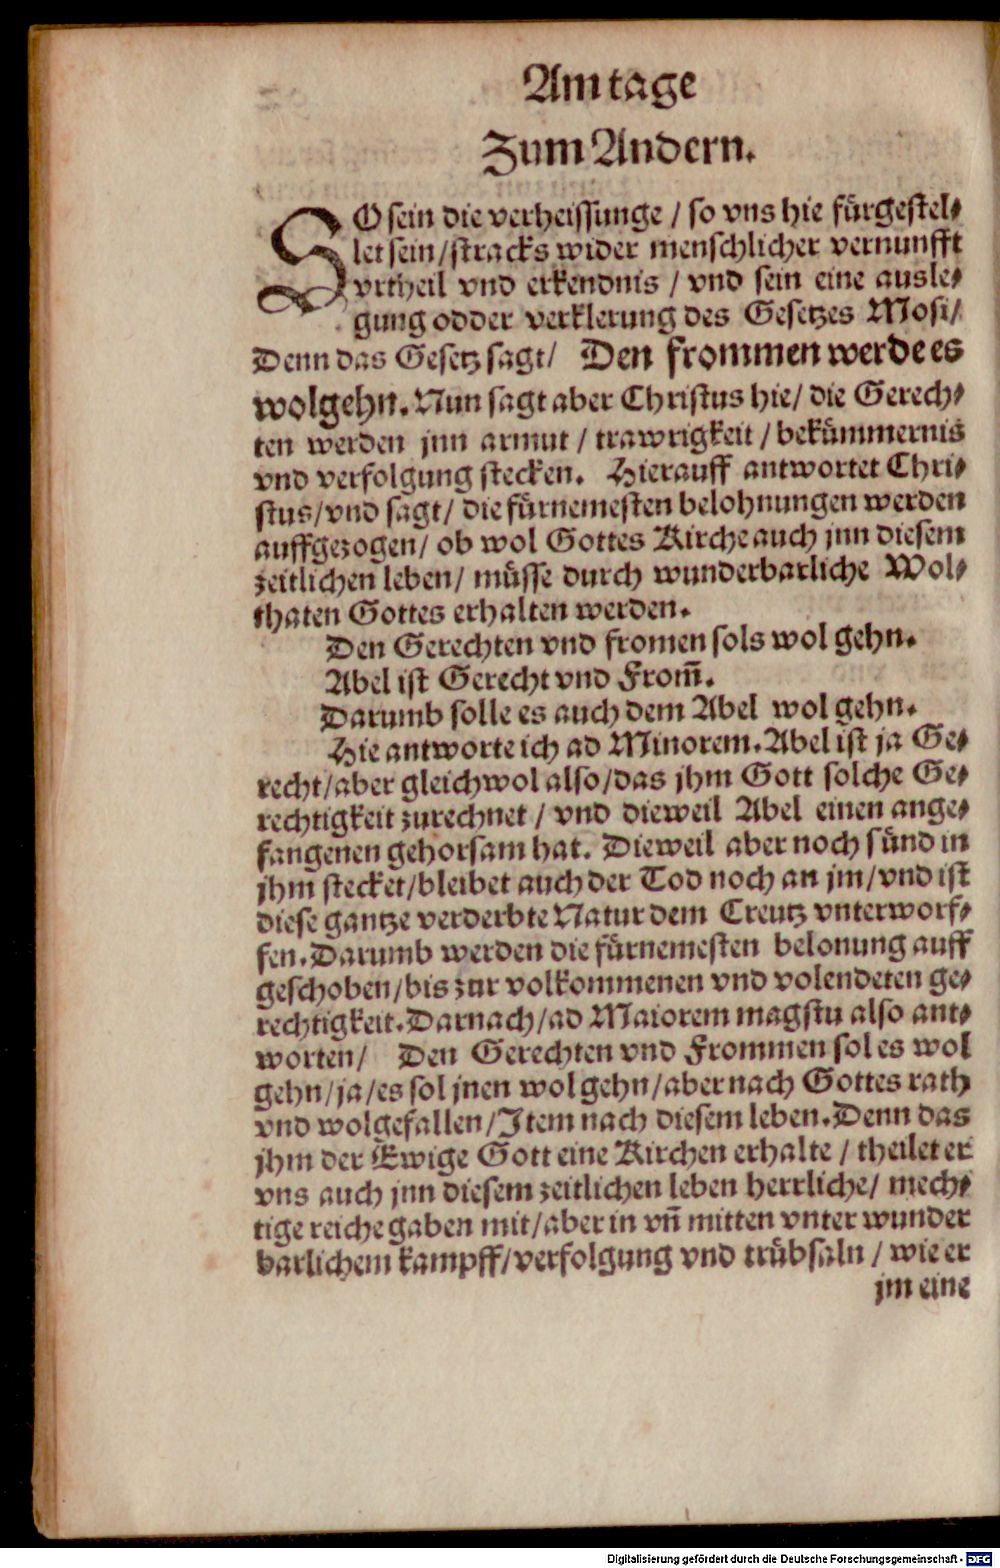 Am tage
Zum Andern.
SO sein die verheissunge / so vns hie fürgestel⸗
let sein / stracks wider menschlicher vernunfft
vrtheil vnd erkendnis / vnd sein eine ausle⸗
gung odder verklerung des Gesetzes Mosi /
Denn das Gesetz sagt / Den frommen werde es
wolgehn. Nun sagt aber Christus hie / die Gerech⸗
ten werden jnn armut / trawrigkeit / bekümmernis
vnd verfolgung stecken. Hierauff antwortet Chri⸗
stus / vnd sagt / die fürnemesten belohnungen werden
auffgezogen / ob wol Gottes Kirche auch jnn diesem
zeitlichen leben / müsse durch wunderbarliche Wol⸗
thaten Gottes erhalten werden.
Den Gerechten vnd fromen sols wol gehn.
Abel ist Gerecht vnd From̃.
Darumb solle es auch dem Abel wol gehn.
Hie antworte ich ad Minorem. Abel ist ja Ge⸗
recht / aber gleichwol also / das jhm Gott solche Ge⸗
rechtigkeit zurechnet / vnd dieweil Abel einen ange⸗
fangenen gehorsam hat. Dieweil aber noch sünd in
jhm stecket / bleibet auch der Tod noch an jm / vnd ist
diese gantze verderbte Natur dem Creutz vnterworf⸗
fen. Darumb werden die fürnemesten belonung auff
geschoben / bis zur volkommenen vnd volendeten ge⸗
rechtigkeit. Darnach / ad Maiorem magstu also ant⸗
worten / Den Gerechten vnd Frommen sol es wol
gehn / ja / es sol jnen wol gehn / aber nach Gottes rath
vnd wolgefallen / Item nach diesem leben. Denn das
jhm der Ewige Gott eine Kirchen erhalte / theilet er
vns auch jnn diesem zeitlichen leben herrliche / mech⸗
tige reiche gaben mit / aber in vñ mitten vnter wunder
barlichem kampff / verfolgung vnd trübsaln / wie er
jm eine
Digitalisierung gefördert durch die Deutsche Forschungsgemeinschaft - DFG